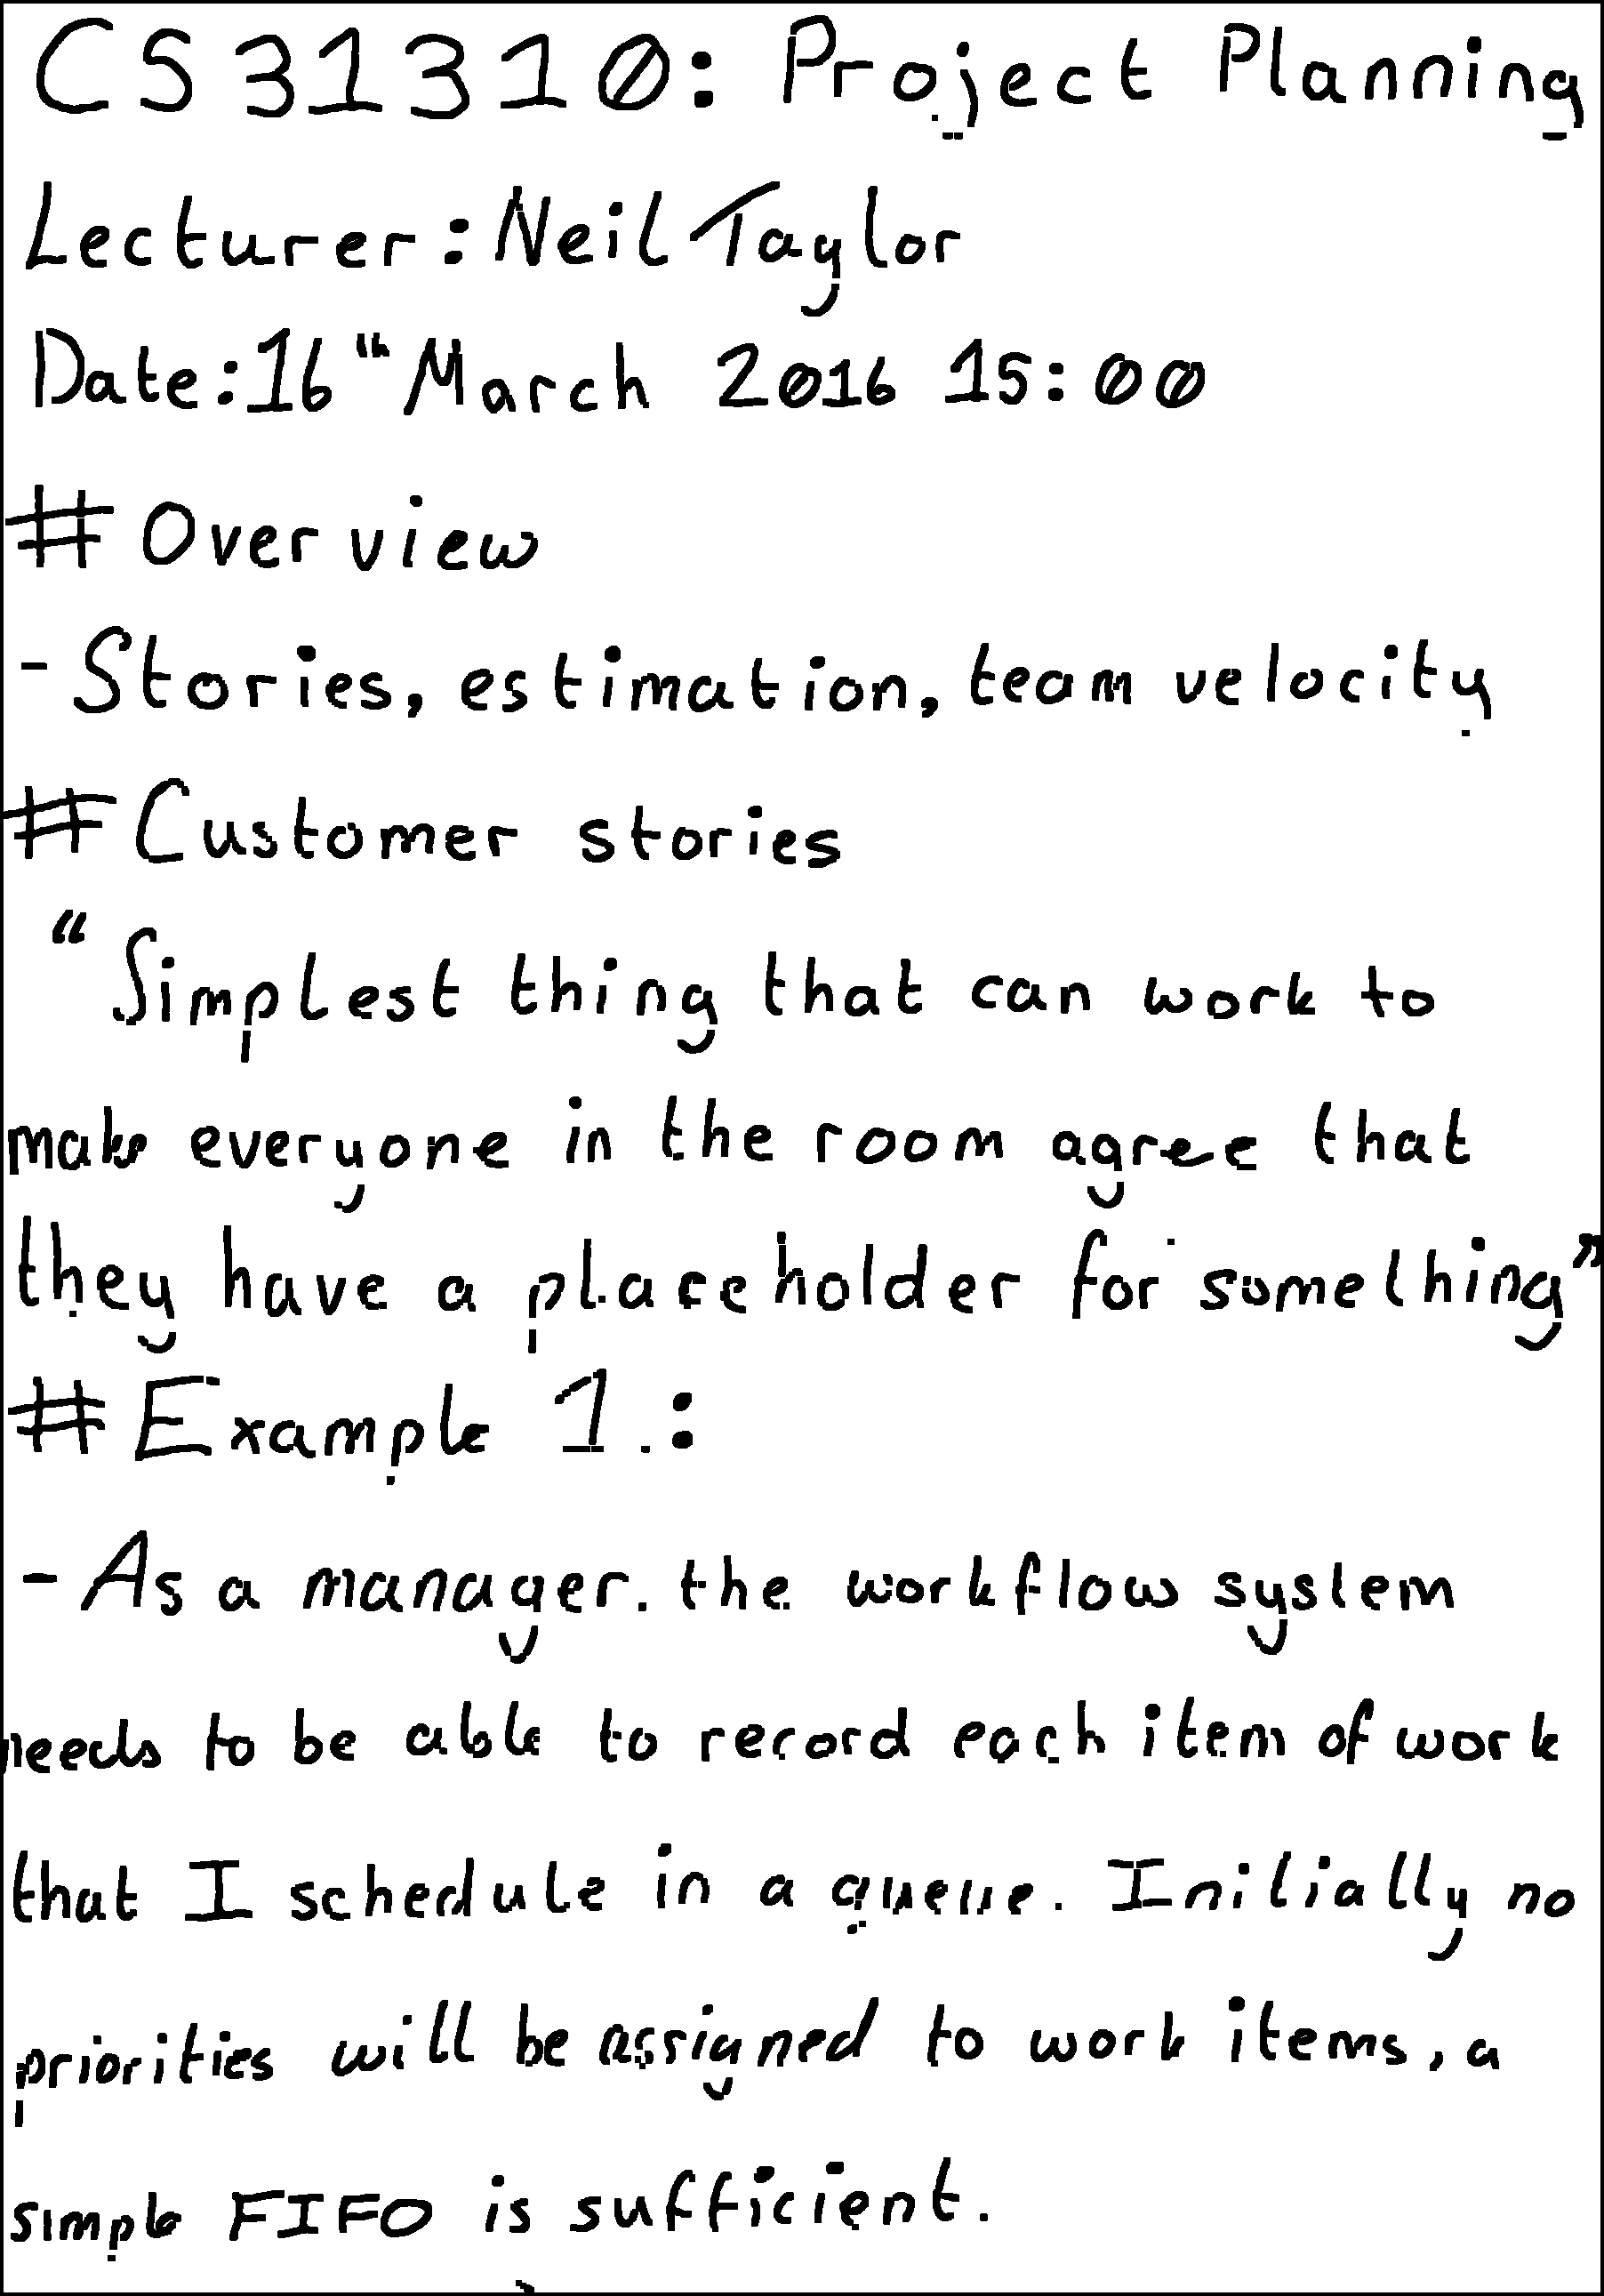 CS31310: Project Planning
Lecturer: Neil Taylor
Date: 16th March 2016 15:00
# Overview
- Stories, estimation, team velocity
# Customer stories
“Simplest thing that can work to
make everyone in the room agree that
they have a placeholder for something”
# Example 1.:
- As a manager. the workflow system
needs to be able to record each item of work
that I schedule in a queue. Initially no
priorities will be assigned to work items, a
simple FIFO is sufficient.